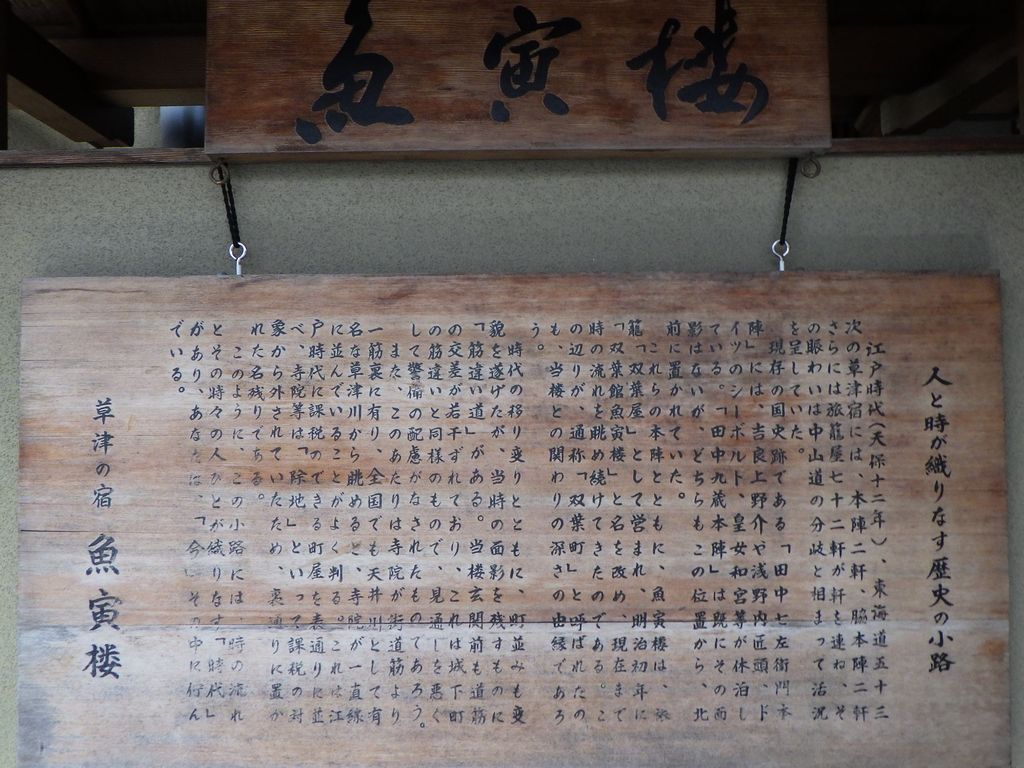 魚寅楼
人と時が織りなす歴史の小路
江戸時代(天保十二年)、東海道五十三
次の草津宿には、本陣二軒、脇本陣二軒
さらには旅籠屋七十二軒が軒を連ね、そ
の賑わいは中山道の分岐と相まって活況
を呈していた。
現存の国史跡である「田中七左衛門本
陣」には、吉良上野介や浅野内匠頭、ド
イツのシーボルト、皇女和宮等が休泊し
ている。「田中九蔵本陣」は既にその面
影はないが、どちらもこの位置から、北
前に置かれていた。
これらの本陣とともに、魚寅楼は、旅
籠「双葉屋」として営まれ、明治初年に
「双葉館魚寅楼」と名を改め、現在まで
時の流れを眺め続けてきたのである。こ
の辺りが、通称「双葉町」と呼ばれたの
も、当楼との関わりの深さの由縁であろ
う。
時代の移り変りとともに、町並みも変
貌を遂げたが、当時の面影を残すものに
「筋違い道」がある。当楼玄関前も道筋
の交差が若干ずれており、これは城下町
の筋違いと同様のもので、見通しを悪く
して警備の配慮がなされたものてあろう。
また、このあたりは寺院が街道筋より
一筋裏に有り、全国でも天井川として有
名な草津川から眺めると、寺院が一直線
に並んでいることがよく判る。これは江
戸時代に課税のできる町屋を表通りに並
べ、寺院等は「除地」といって課税の対
象から外されていたため、裏通りに置か
れた名残りである。
このように、この小路には、時の流れ
とその時々の人びとが織りなす「時代」
があり、あなたはこ「今」その中に佇ん
でいる。
草津の宿 魚寅楼